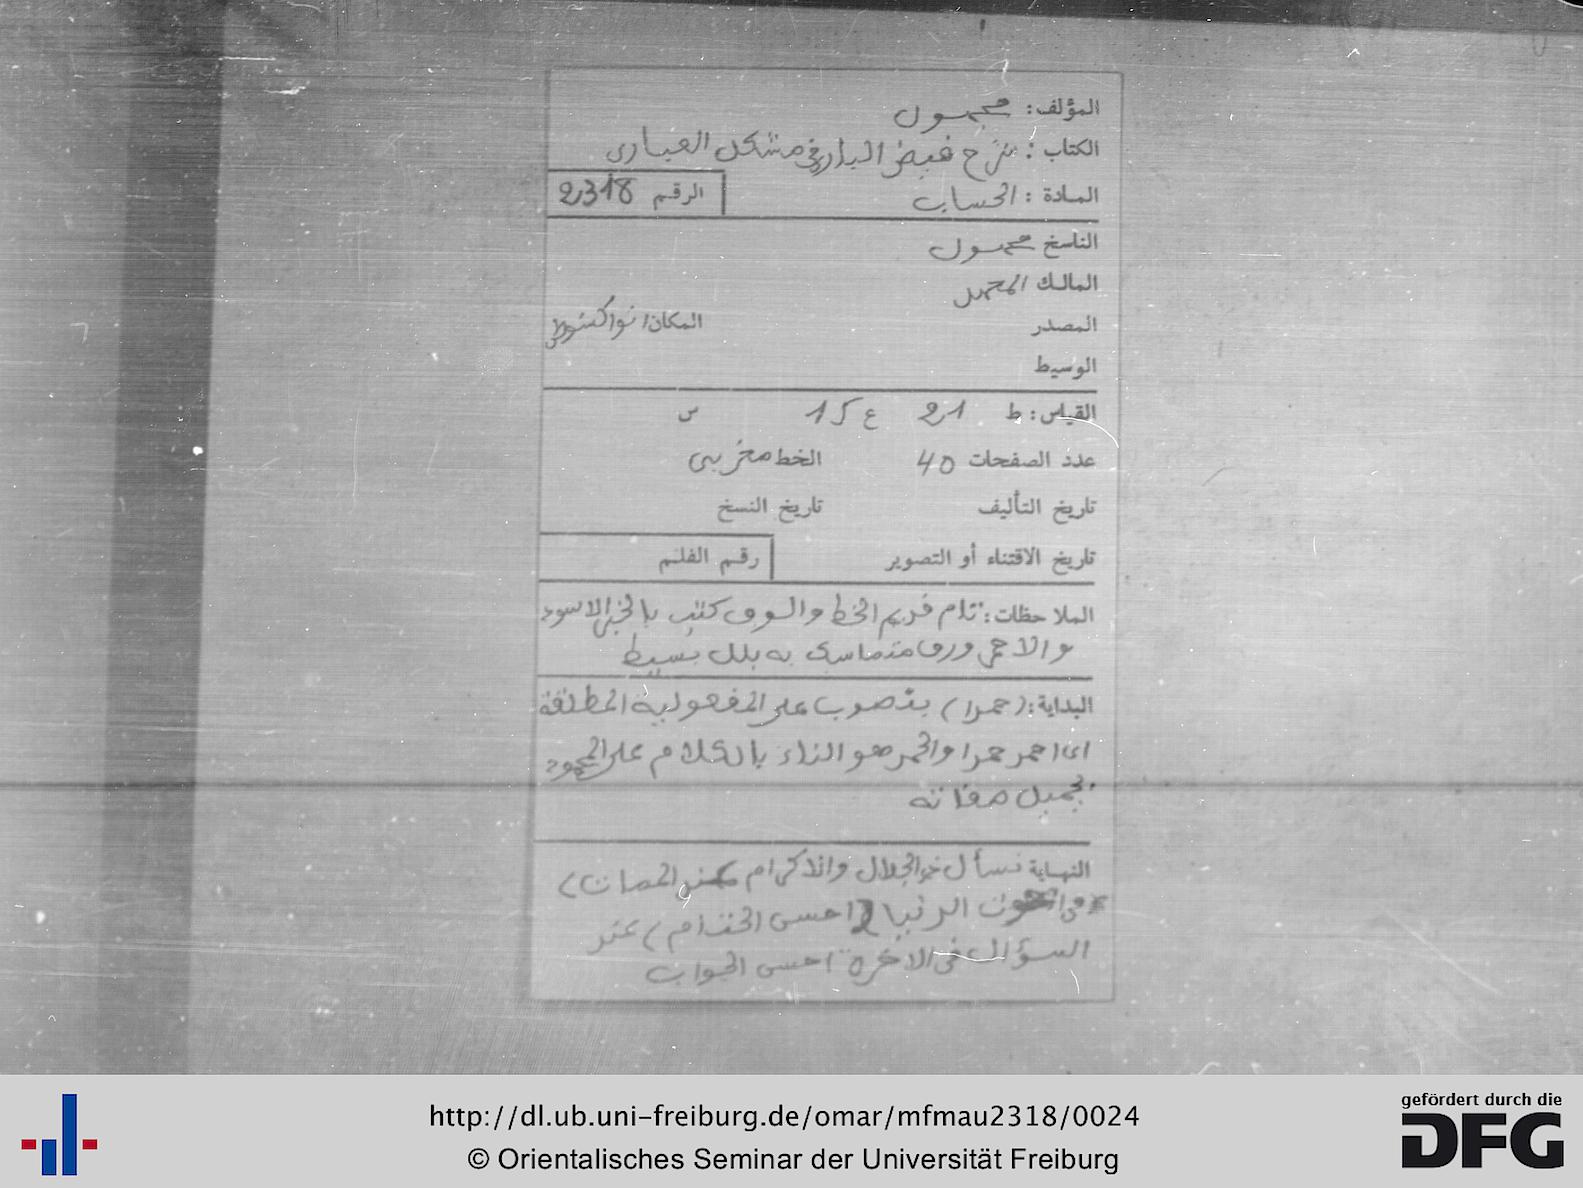 المؤلف: مجهول
الكتاب: شرح فيض الباري في مشكل العبارى
المادة: الحساب الرقم 2318
الناسخ مجهول
المالك المتحف
المصدر المكان نواكشوط
الوسيط
القياس: ط 21 ع 15 س
عدد الصفحات 40 الخط مغربي
تاريخ التأليف تاريخ النسخ
تاريخ الاقتناء أو التصوير رقم الفلم
الملاحظات: تام قديم الخط والورق كتب بالحبر الاسود
والاحمر ورق متماسك به بلل بسيط
البداية: (حمدا) منصوب على المفعولية المطلقة
اى احمد حمدا والحمد هو الثناء بالكلام على المحمود
بجميل صفاته
النهاية نسأل ذو الجلال والاكرام عند الممات)
الدنيا (احسن الختام) عند
السؤال فى الاخرة احسن الجواب
http://dl.ub.uni-freiburg.de/omar/mfmau2318/0024
© Orientalisches Seminar der Universität Freiburg
gefördert durch die
DFG